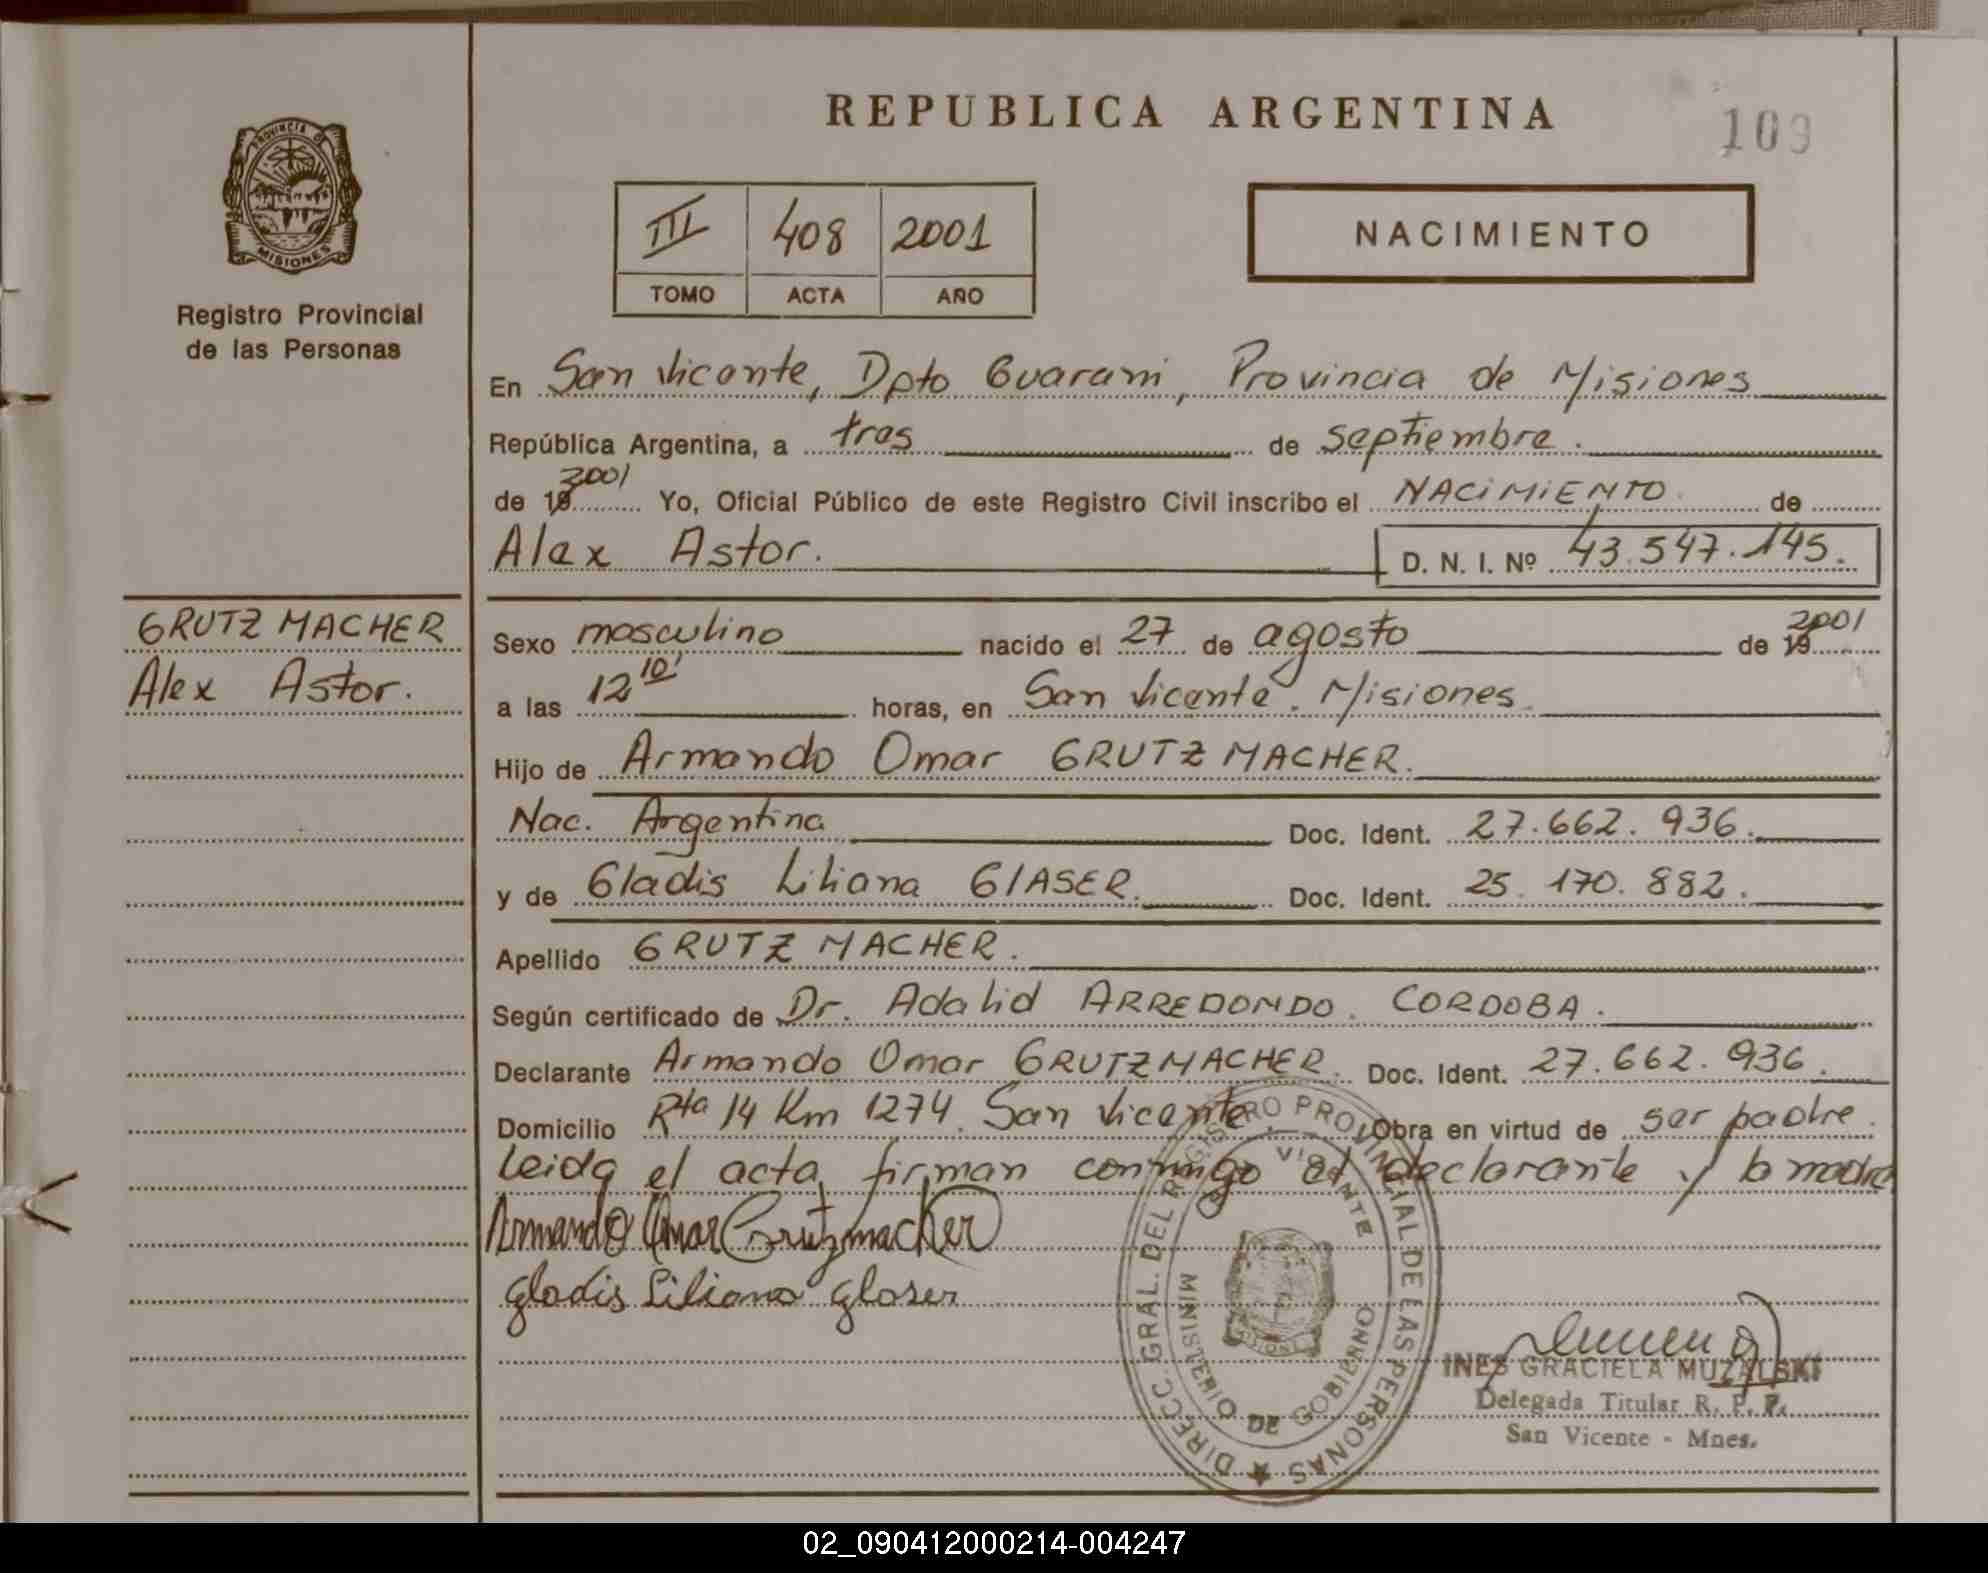 REPUBLICA ARGENTINA
109
PROVINCIA DE
MISIONES
Registro Provincial
de las Personas
III 408 2001
TOMO ACTA AÑO
NACIMIENTO
En San Vicente, Dpto Guarani, Provincia de Misiones
República Argentina, a tres de septiembre.
de 19 2001 Yo, Oficial Público de este Registro Civil inscribo el NACIMIENTO de
Alex Astor. D. N. I. Nº 43.547.145.
GRUTZMACHER
Alex Astor.
Sexo masculino nacido el 27 de agosto de 19 2001
a las 12 10' horas, en San Vicente. Misiones.
Hijo de Armando Omar GRUTZMACHER.
Nac. Argentina Doc. Ident. 27.662.936.
y de Gladis Liliana GlASER. Doc. Ident. 25.170.882.
Apellido GRUTZMACHER.
Según certificado de Dr. Adalid ARREDONDO. CORDOBA.
Declarante Armando Omar GRUTZMACHER. Doc. Ident. 27.662.936.
Domicilio Rta 14 Km 1274. San Vicente. Obra en virtud de ser padre.
Leida el acta, firman conmigo el declarante y la madre
Armando Omar Grutzmacher
Gladis Liliana Glaser
DIREC. GRAL. DEL REGISTRO PROVINCIAL DE LAS PERSONAS
MINISTERIO DE GOBIERNO
INES GRACIELA MUZALSKI
Delegada Titular R. P. P.
San Vicente - Mnes.
02_090412000214-004247